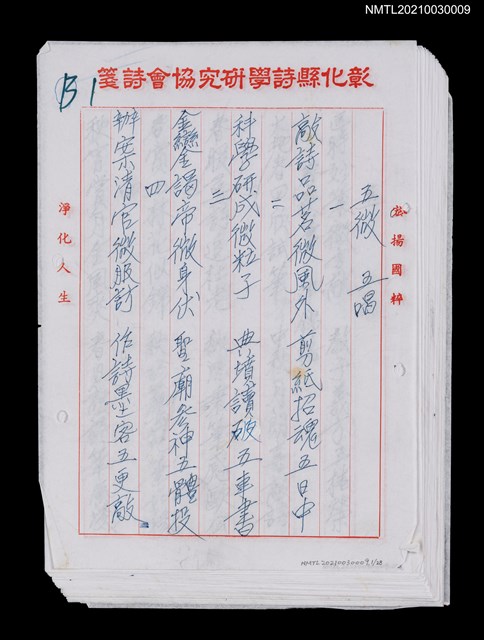 NMTL20210030009
彰化縣詩學研究協會詩箋
B1
宏揚國粹
五微 五唱
一
敲詩品茗微風外 剪紙招魂五日中
二
科學研成微粒子 典墳讀破五車書
三
金鑾謁帝微身伏 聖廟參神五體投
四
辦案清官微服訪 作詩墨客五更敲
淨化人生